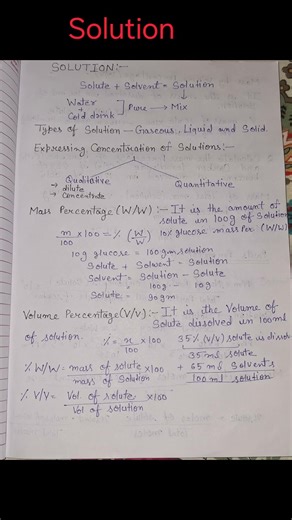 Solution
SOLUTION:-
Solute + Solvent = Solution
Water
+
Cold drink ] Pure → Mix
Types of Solution - Gaseous, Liquid and Solid
Expressing Concentration of Solutions:-
Qualitative
→ dilute
→ Concentrate
Quantitative
Mass Percentage (W/W) :- It is the amount of
solute in 100g of Solution
x/100 × 100 = % (W/W) 10% glucose mass Per. (W/W)
10g glucose = 100gm solution
Solute + Solvent = Solution
Solvent = Solution - Solute
= 100g - 10g
Solute = 90gm
Volume Percentage (V/V) :- It is the Volume of
Solute dissolved in 100ml
of solution.
% = x/100 × 100
35% (V/V) solute is dissol
35 ml solute
+ 65 ml Solvents
100 ml solution
% W/W = mass of solute/mass of Solution × 100
% V/V = Vol. of solute/Vol of solution × 100